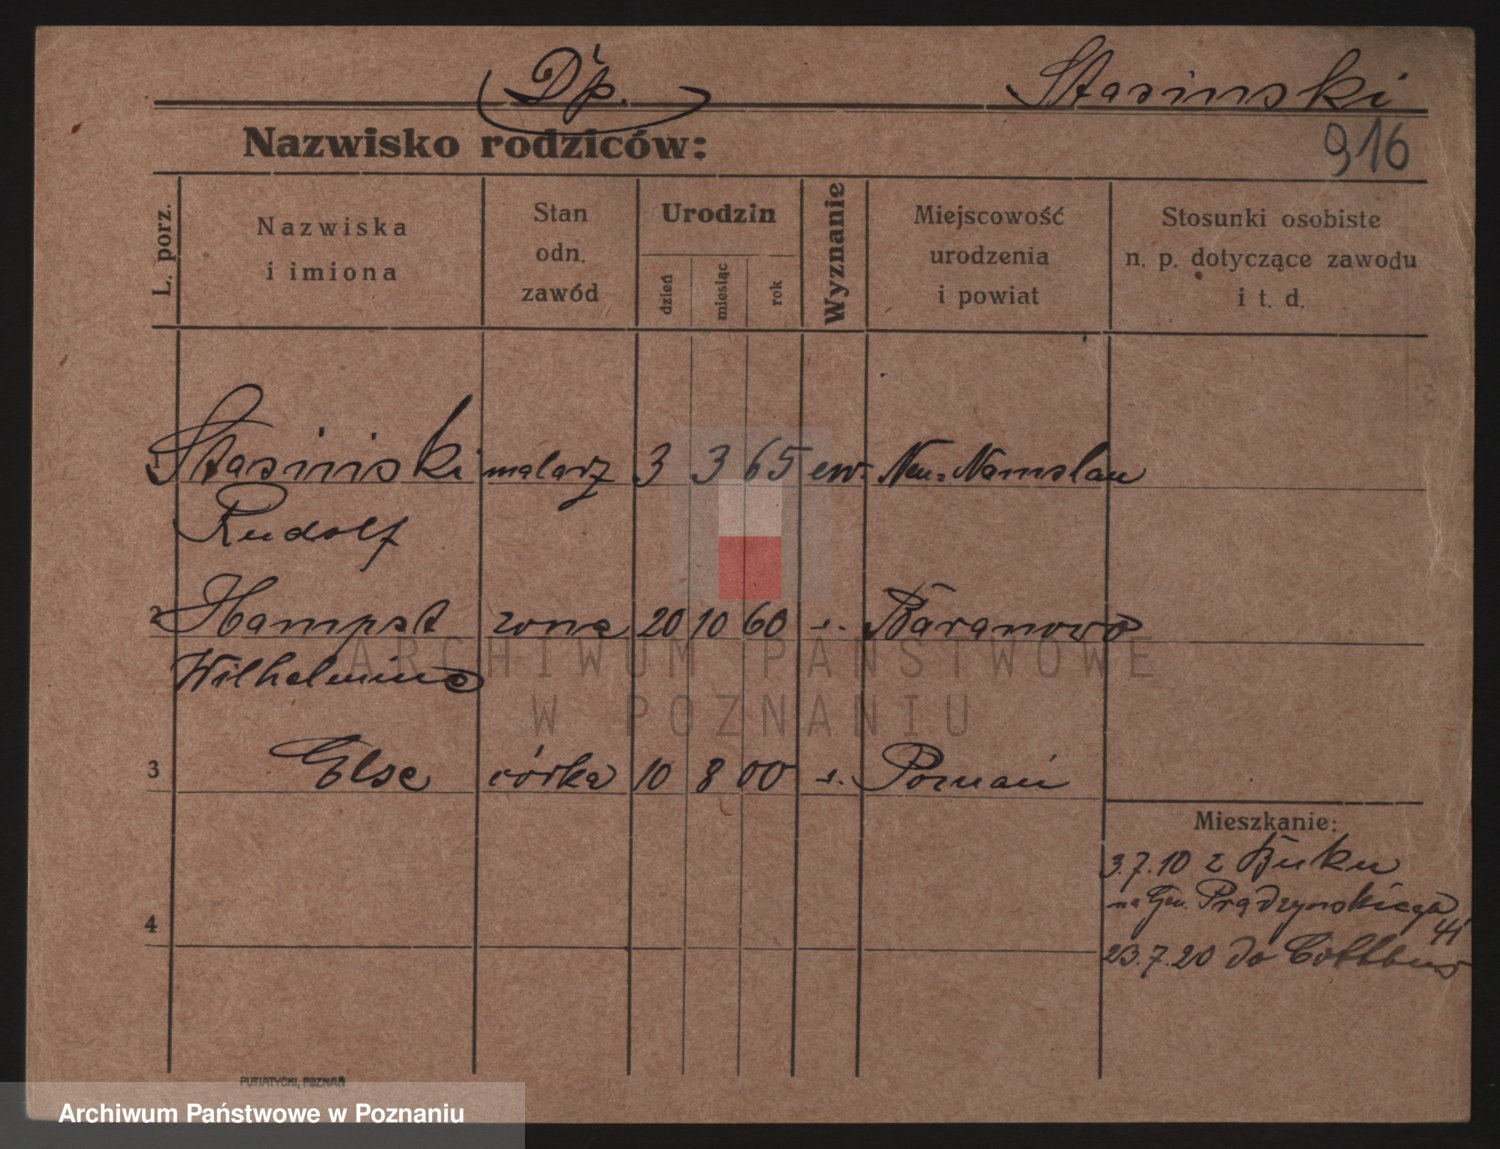 Dp. Stasinski
Nazwisko rodziców:
916
L. porz.
Nazwiska
i imiona
Stan
odn.
zawód
Urodzin
dzień
miesiąc
rok
Wyznanie
Miejscowość
urodzenia
i powiat
Stosunki osobiste
n. p. dotyczące zawodu
i t. d.
1 Stasinski malarz 3 3 65 ew. Neu-Namslau
Rudolf
2 Hampst żona 20 10 60 Baranowo
Wilhelmine
ARCHIWUM PAŃSTWOWE
W POZNANIU
3 Else córka 10 8 00 Poznań
Mieszkanie:
3.7.10 z Buku
na Gen. Prądzynskiego
41
4
23.7.20 do Cottbus
PUTIATYCKI, POZNAŃ
Archiwum Państwowe w Poznaniu